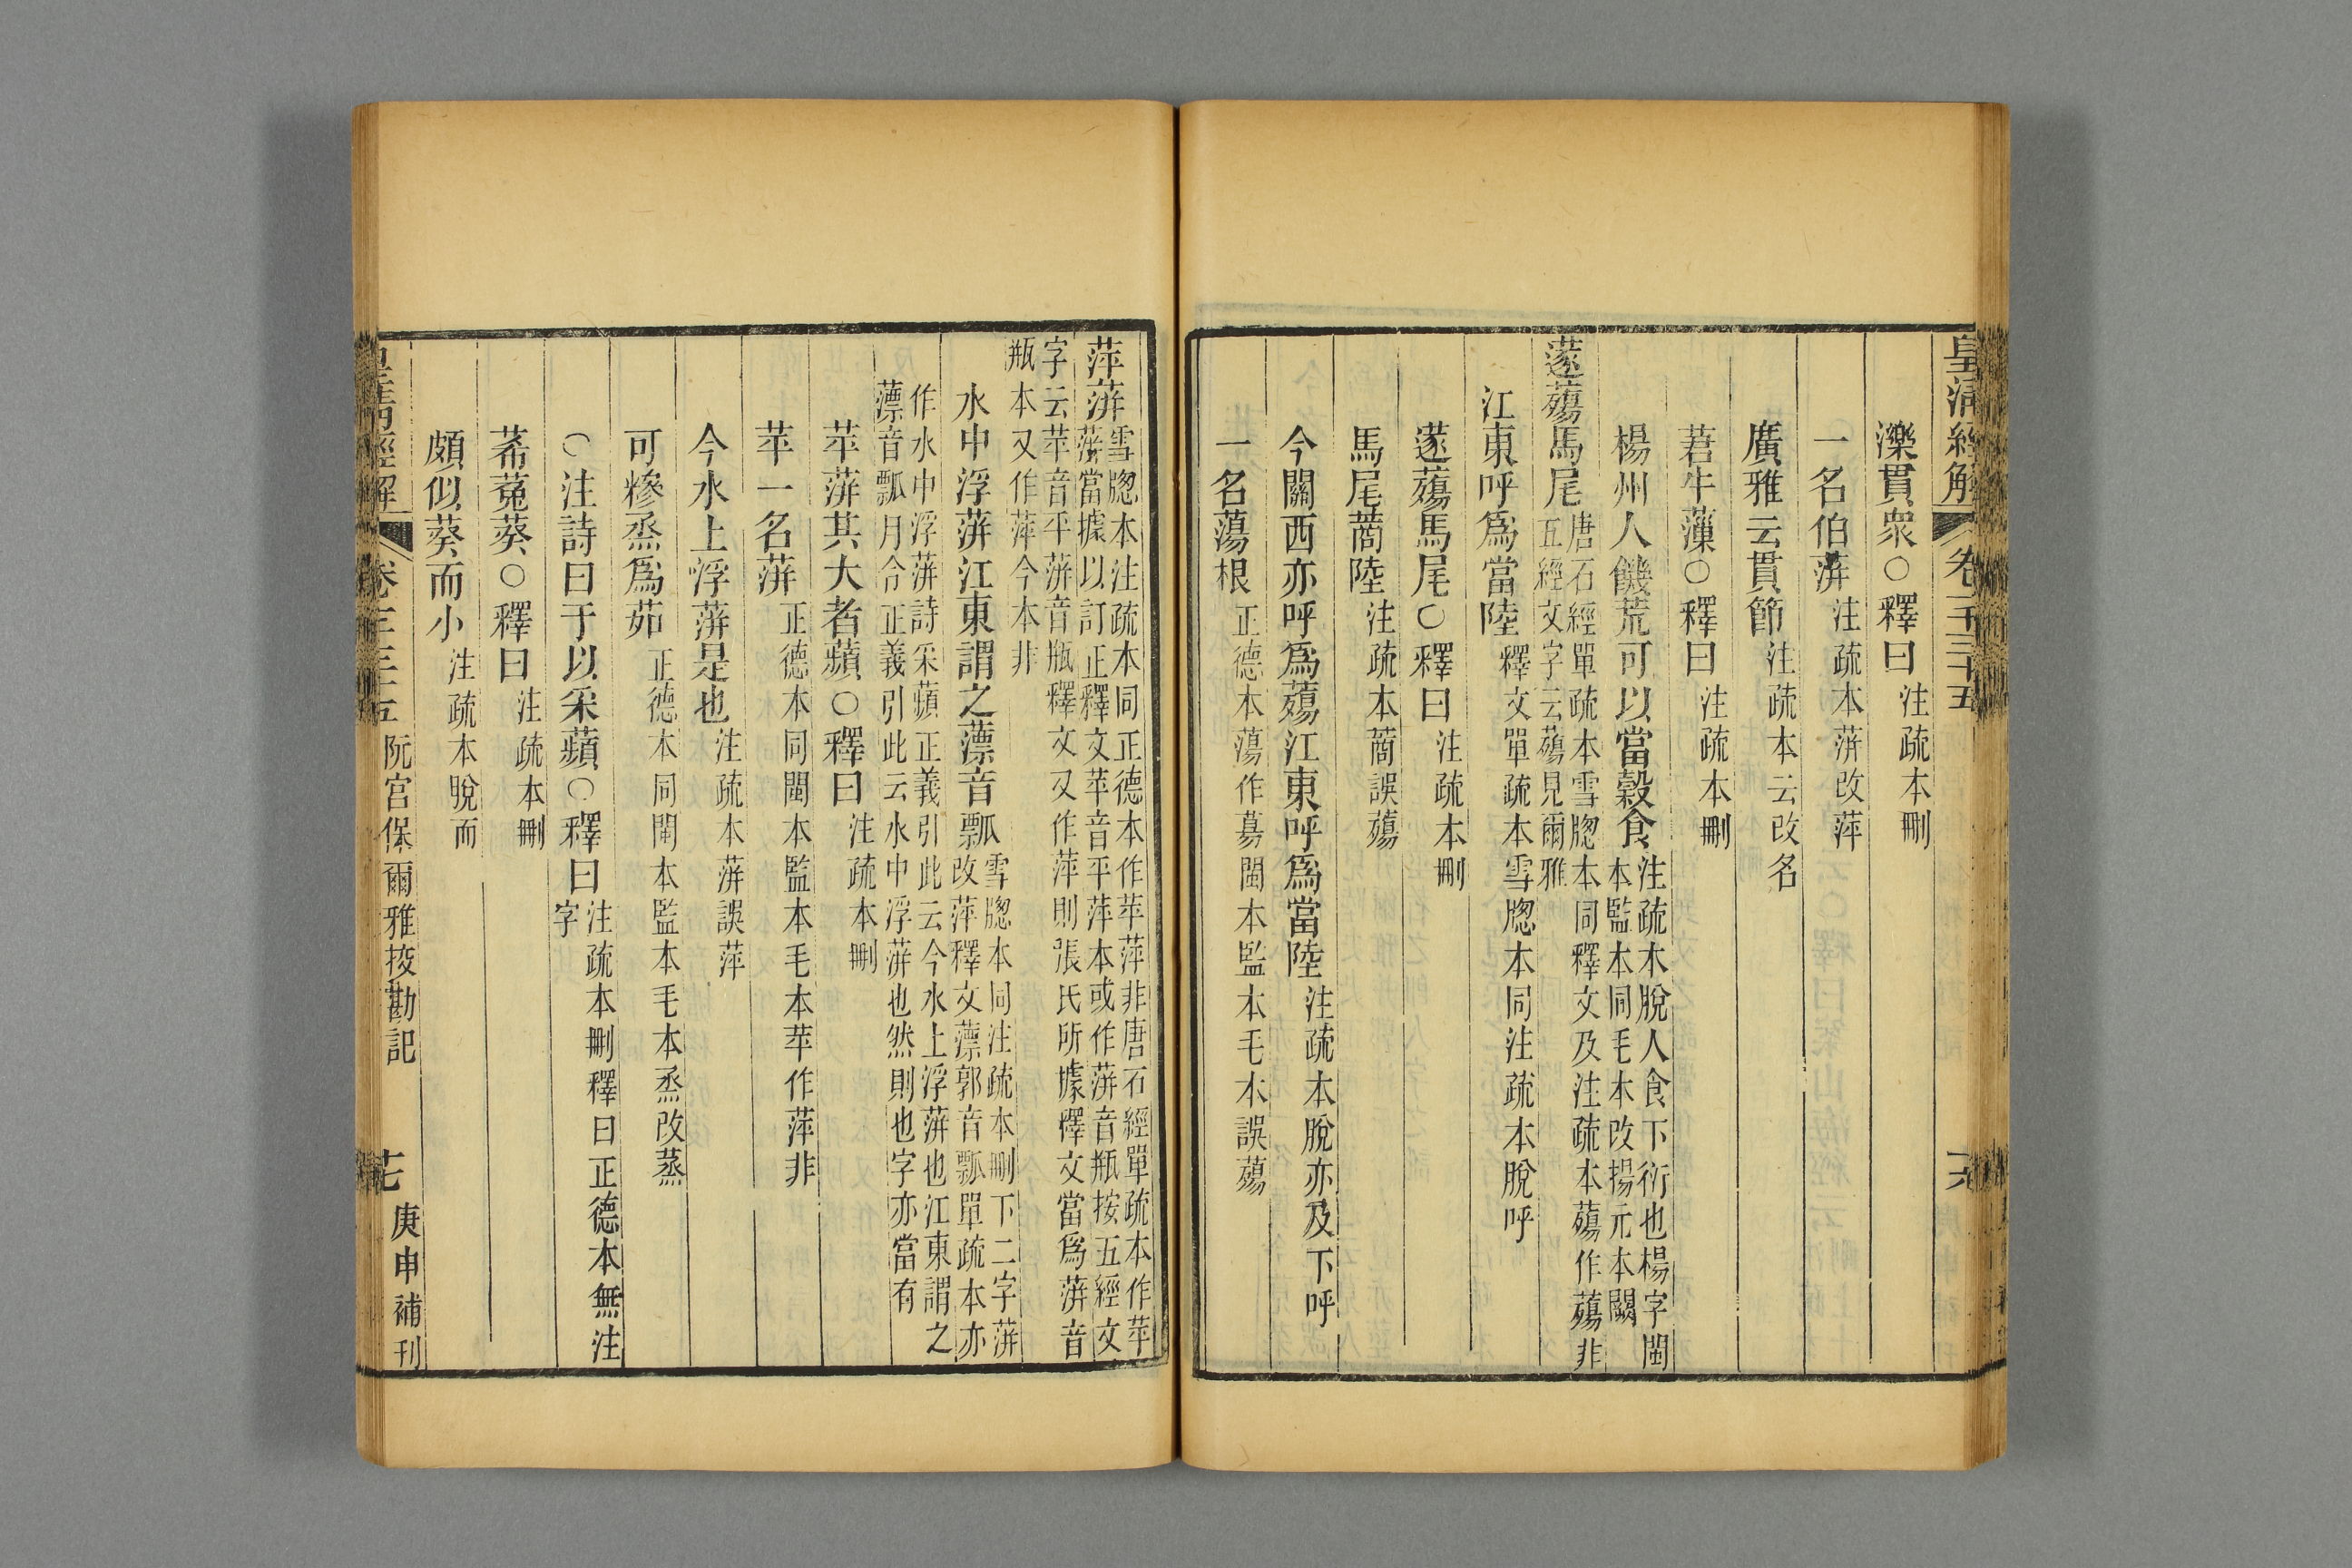 皇清經解 卷一千三十五 六
濼貫衆○釋曰注疏本刪
一名伯蓱注疏本蓱改萍
廣雅云貫節注疏本云改名
莙牛薻○釋曰注疏本刪
楊州人饑荒可以當穀食注疏本脫人食下衍也楊字閩
本監本同毛本改揚元本闕
蓫薚馬尾唐石經單疏本雪牎本同釋文及注疏本薚作蕩非
五經文字云薚見爾雅
江東呼爲當陸釋文單疏本雪牎本同注疏本脫呼
蓫薚馬尾○釋曰注疏本刪
馬尾蔏陸注疏本蔏誤薚
今關西亦呼爲薚江東呼爲當陸注疏本脫亦及下呼
一名蕩根正德本蕩作募閩本監本毛本誤薚
萍蓱雪牎本注疏本同正德本作苹萍非唐石經單疏本作苹
蓱當據以訂正釋文苹音平萍本或作蓱音瓶按五經文
字云苹音平蓱音瓶釋文又作萍則張氏所據釋文當爲蓱音
瓶本又作萍今本非
水中浮蓱江東謂之薸音瓢雪牎本同注疏本刪下二字蓱
改萍釋文薸郭音瓢單疏本亦
作水中浮蓱詩采蘋正義引此云今水上浮蓱也江東謂之
薸音瓢月令正義引此云水中浮蓱也然則也字亦當有
苹蓱其大者蘋○釋曰注疏本刪
苹一名蓱正德本同閩本監本毛本苹作萍非
今水上浮蓱是也注疏本蓱誤萍
可糝烝爲茹正德本同閩本監本毛本烝改蒸
○注詩曰于以采蘋○釋曰注疏本刪釋曰正德本無注
字
莃菟葵○釋曰注疏本刪
頗似葵而小注疏本脫而
皇清經解 卷一千三十五 阮宮保爾雅挍勘記 七 庚申補刊